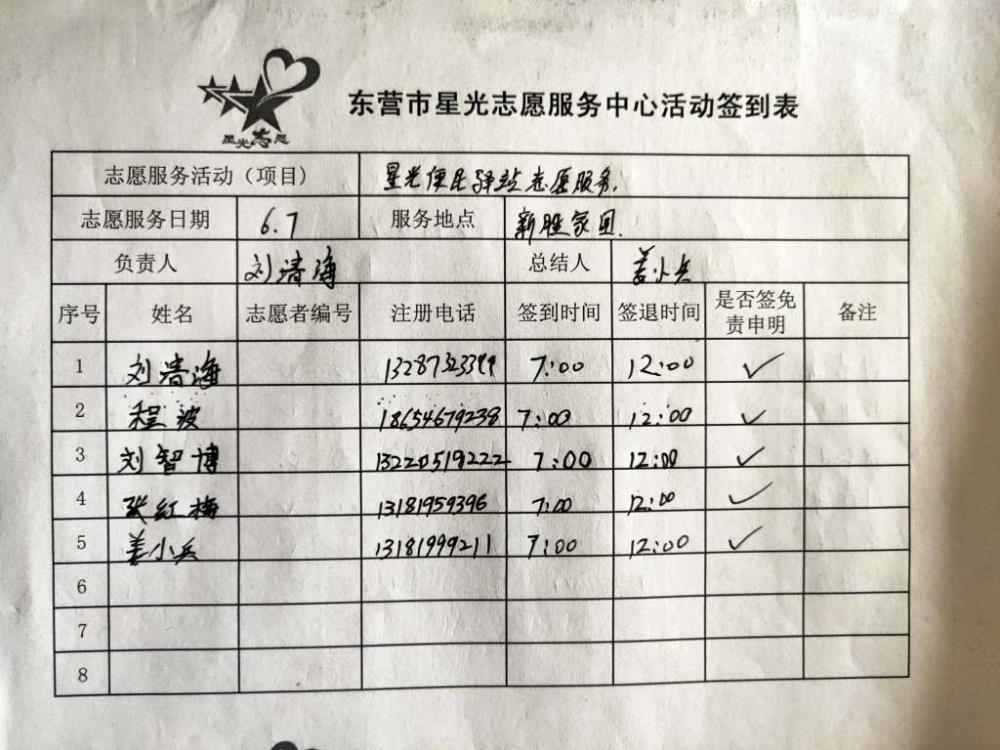 星光志愿
东营市星光志愿服务中心活动签到表
志愿服务活动（项目） 星光便民驿站志愿服务.
志愿服务日期 6.7 服务地点 新胜家园.
负责人 刘清海 总结人 姜小兵
序号 姓名 志愿者编号 注册电话 签到时间 签退时间 是否签免责申明 备注
1 刘清海 13287323399 7:00 12:00 ✓
2 程波 18654679238 7:00 12:00 ✓
3 刘智博 13220519222 7:00 12:00 ✓
4 张红梅 13181959396 7:00 12:00 ✓
5 姜小兵 13181999211 7:00 12:00 ✓
6
7
8